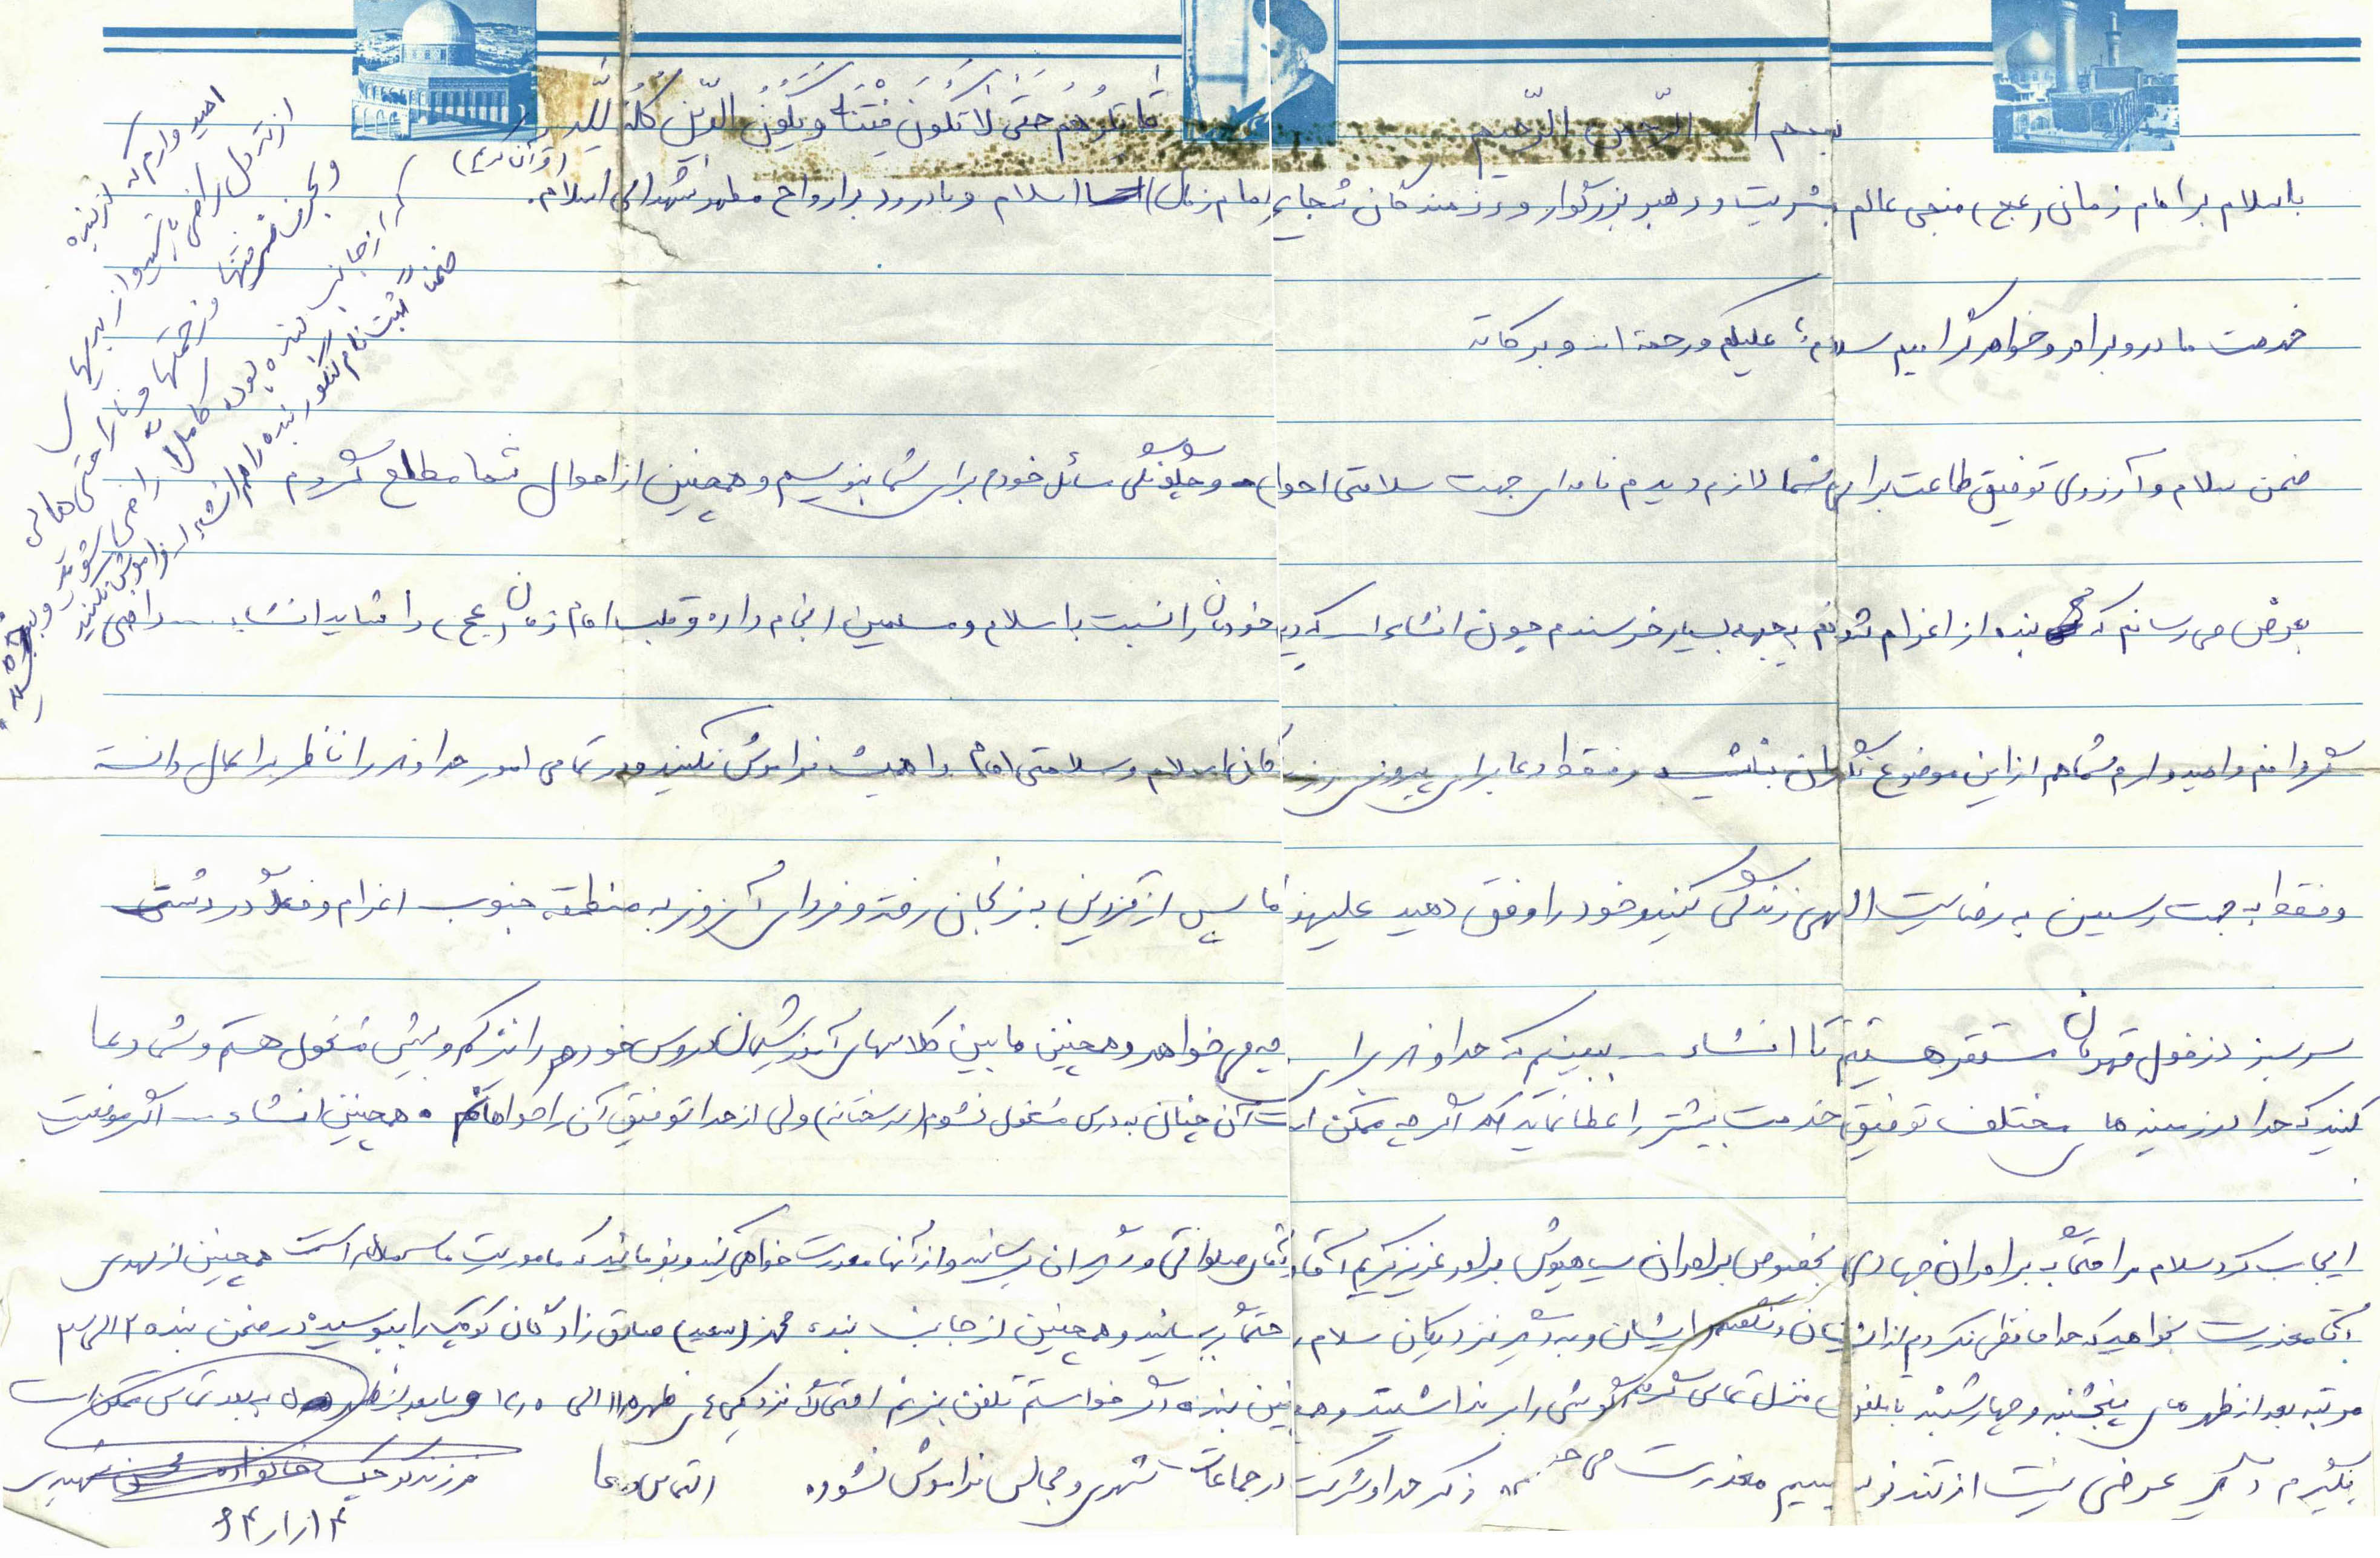 بسم الله الرّحمن الرّحیم
قاتِلوُهُم حَتّیٰ لاٰ تَکُونَ فِتْنَةٌ وَیَکُونَ الدّینُ کُلُّهُ لِلّٰهِ
(قرآن کریم)
باسلام بر امام زمان (عج) منجی عالم بشریت و رهبر بزرگوار و رزمندگان شجاع امام زمان اسلام و بادرود بر ارواح مطهر شهدای اسلام.
خدمت مادر و برادر و خواهر گرامیم سلام علیکم ورحمة الله وبرکاته
ضمن سلام و آرزوی توفیق طاعت برای شما لازم دیدم نامه‌ای جهت سلامتی احوال و چگونگی مسائل خودم برای شما بنویسم و همچنین از احوال شما مطلع گردم
بعرض می رسانم که بنده از اعزام شدنم به جبهه بسیار خرسندم چون انشاءالله که دین خودمان را نسبت به اسلام و مسلمین انجام داده و قلب امام زمان (عج) را شاید انشاءالله راضی
گردانم و امیدوارم شما هم از این موضوع نگران نباشید و فقط دعا برای پیروزی رزمندگان اسلام و سلامتی امام را همیشه فراموش نکنید و در تمامی امور خداوند را ناظر بر اعمال دانسته
و فقط به جهت رسیدن به رضایت الهی زندگی کنید و خود را وفق دهید علیهذا ما پس از قزوین به زنجان رفته و فردای آنروز به منطقه جنوب اعزام و فعلاً در دشتی
سرسبز دزفول قهرمان مستقر هستیم تا انشاءالله ببینیم که خداوند برای چه می خواهد و همچنین مابین کلاسهای آموزشیمان دروس خودم را نیز کم و بیش مشغول هستم و شما دعا
کنید که خدا در زمینه های مختلف توفیق خدمت بیشتر را عطا نماید اگر چه ممکن است آن چنان به درس مشغول نشوم ولی از خدا توفیق آن را خواهانم و همچنین انشاءالله اگر موقعیت
ایجاب کرد سلام مرا حتماً به برادران جهادی بخصوص برادران برادر عزیز کریم آقا و دیگران برسانید و از آنها معذرت خواهی کنید و بفرمائید که ماموریت ما است همچنین از مهدی
آقا معذرت بخواهید که خداحافظی نکردم از ایشان و به دیگر نزدیکان سلام حتماً برسانید و همچنین از جانب بنده محمد (سعید) صادق زادگان کوچک را ببوسید در ضمن بنده ۲ الی ۳
مرتبه بعد از ظهر های پنجشنبه و چهارشنبه با تلفن منزل تماس گرفتم گوشی را بر نداشتید و همچنین بنده اگر خواستم تلفن بزنم احتمالاً نزدیکی ظهر ۱۱ الی ۱۲/۵ و یا بعد از ظهر به بعد تماس ممکن است
بگیرم دیگر عرضی نیست از تند نویسیم معذرت می خواهم ذکر خدا و شرکت در جماعات شهدی و مجالس فراموش نشود التماس دعا
فرزند کوچک خانواده محسن مهدی
۶۴/۱/۱۴
امیدوارم که از بنده
از ته دل راضی باشید و از بدیها
و بجز زحمتها و ناراحتی های
که از جانب بنده بوده کاملا راضی شوید و
ضمنا ثبت نام کنکور بنده را انشاءالله فراموش نکنید